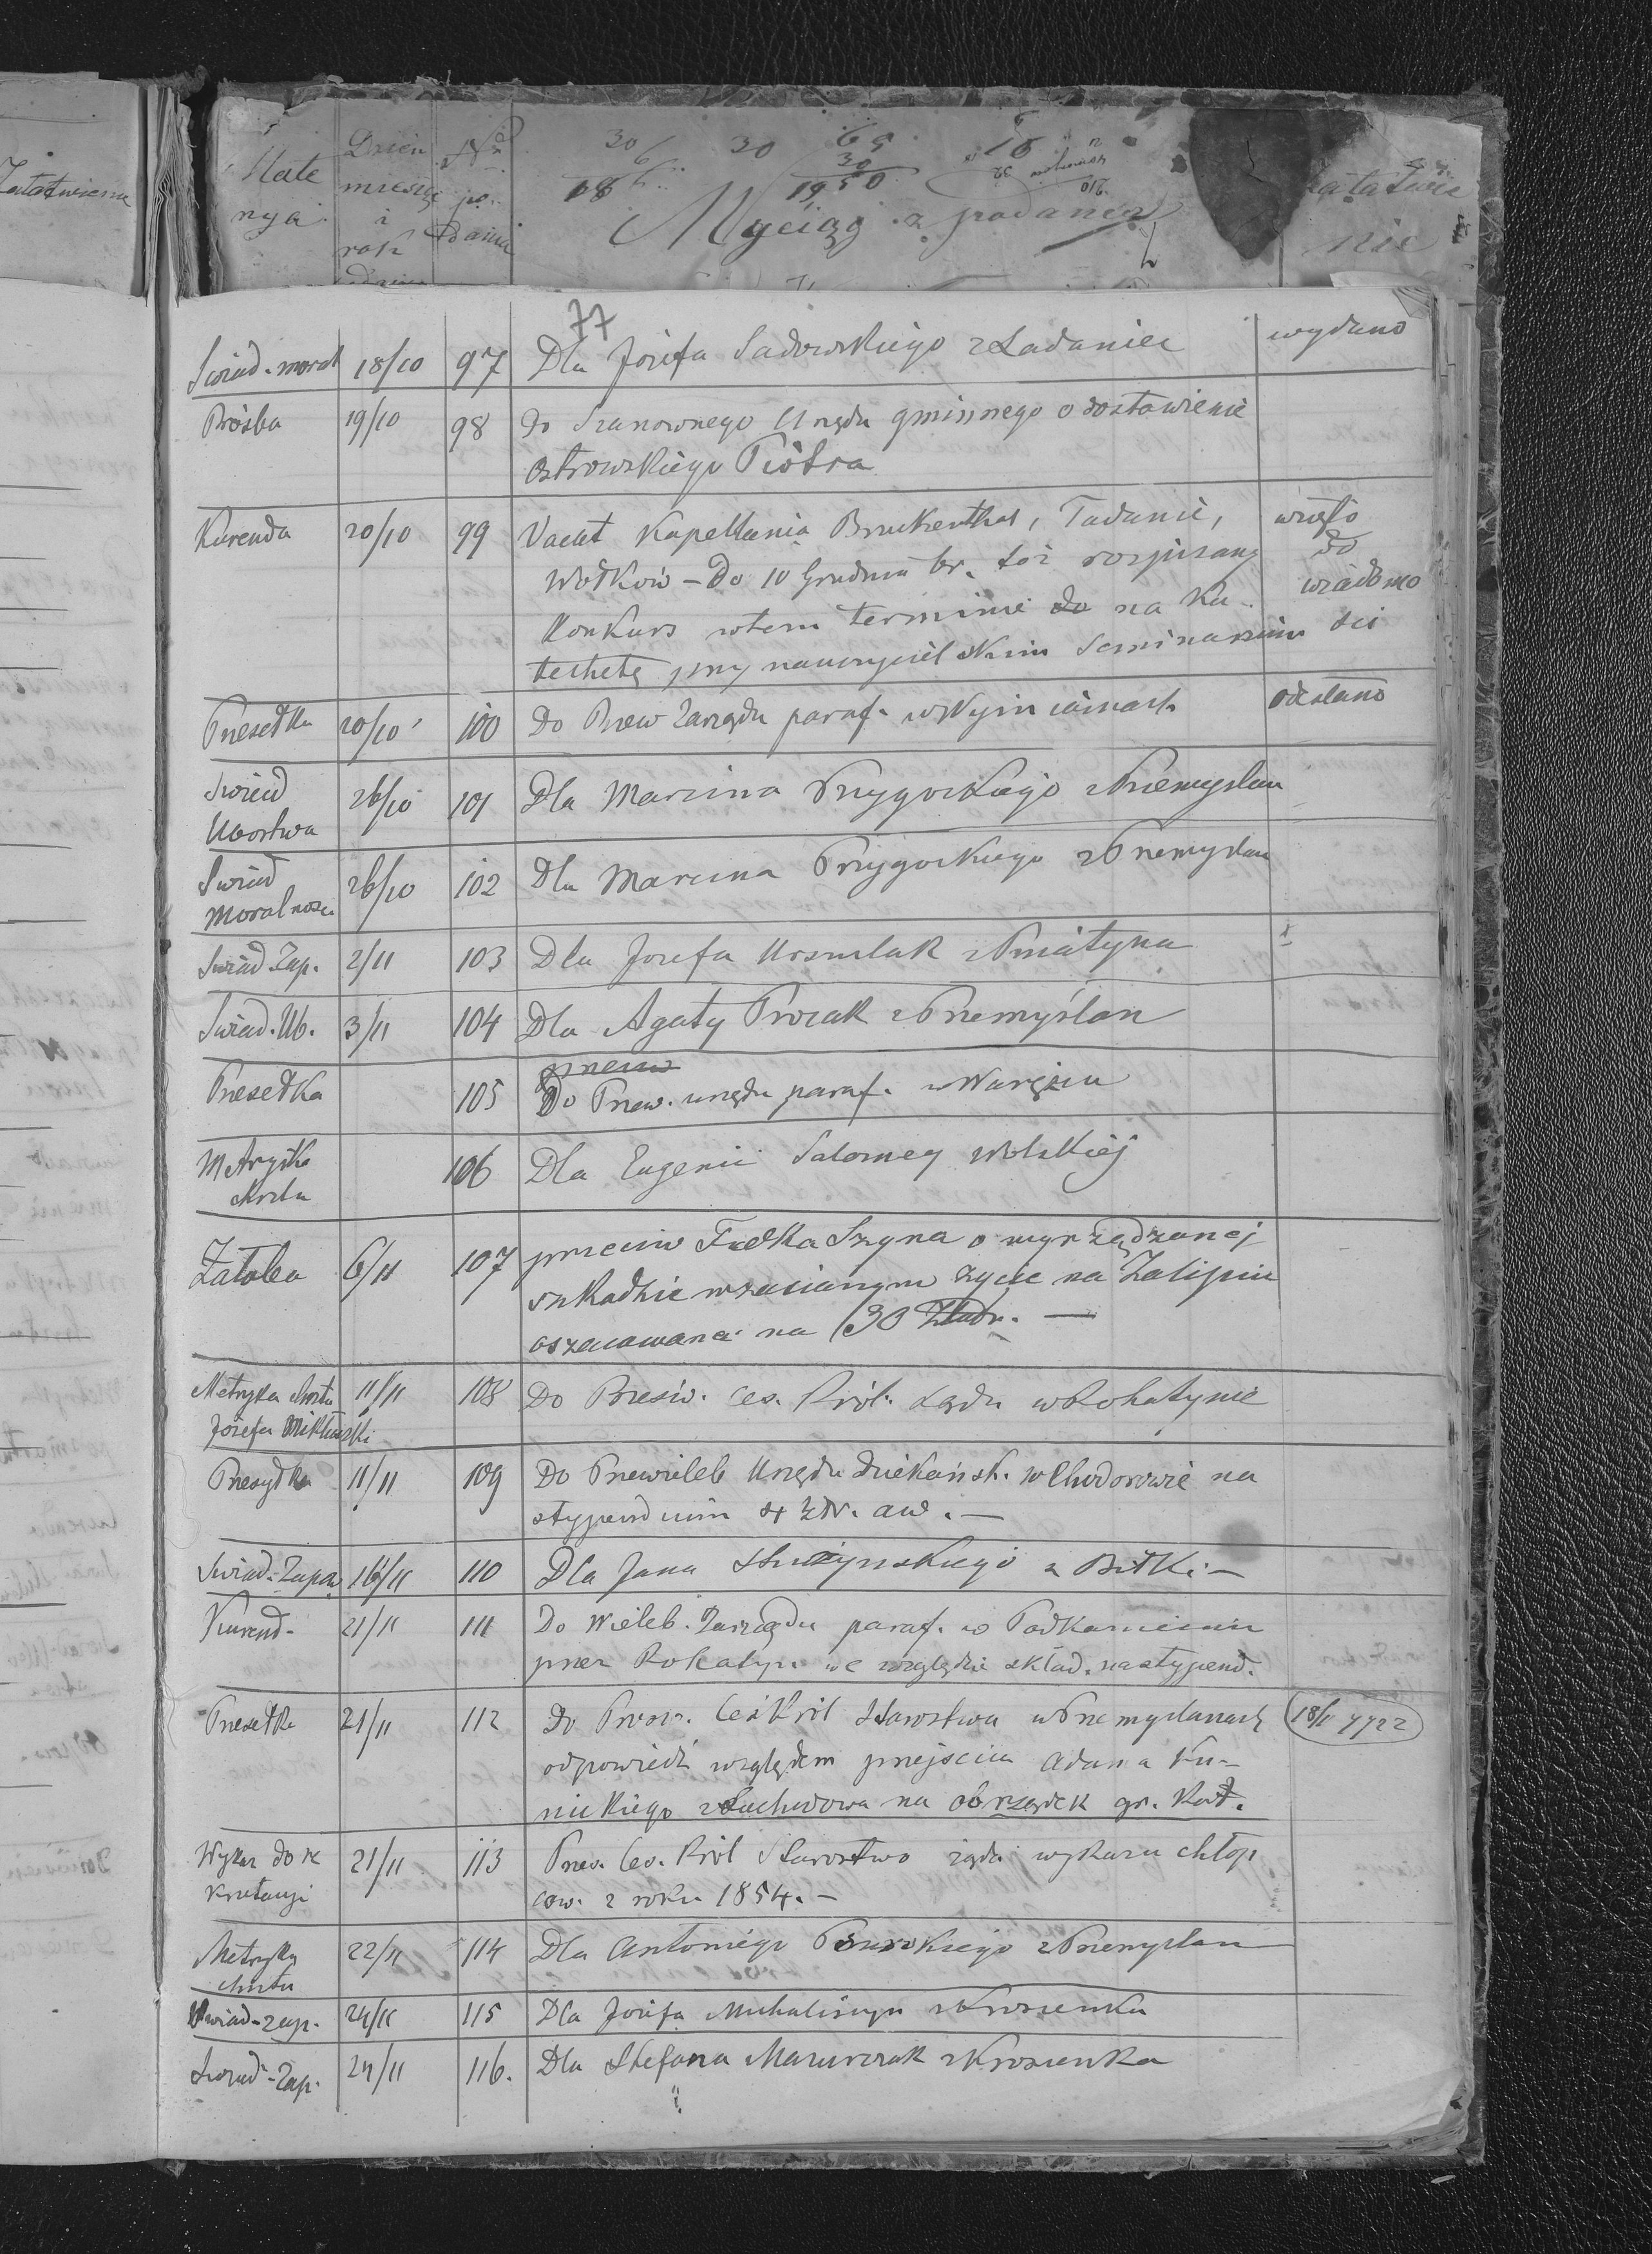 Zatatwienie
Mate
rya
Dzień
miesiąc
i
rok
No
po
dania
Wyciąg z podania
Załatwie
nie
77
Świad. moral 18/10 97 Dla Józefa Sadowskiego z Ładaniec wydano
Prośba 19/10 98 Do Szanownego Urzędu gminnego o dostawienie
Ostrowskiego Piotra
Kurenda 20/10 99 Vacat Kapellania Brukenthal, Tadanie, wzięto
Wołków – Do 10 Grudnia br. też rozpisany do
Konkurs w tem terminie do na Ka- wiadomo
techetę przy nauczycielskim Seminarium ści
Przesełka 20/10 100 Do Przew Zarządu paraf. w odesłano
Świad
Ubostwa 26/10 101 Dla Marcina Przygockiego z Przemyślan
Świad
Moralnosci 26/10 102 Dla Marcina Przygockiego z Przemyslan
Świad Zap. 2/11 103 Dla Jozefa Urszulak z Pniatyna x
Świad. Ub. 3/11 104 Dla Agaty Prozak z Przemyślan
Przesełka 105 Do Przew. urzędu paraf. w Waręzu
Metryka
chrztu 106 Dla Eugenii Salomey Wolskiej
Zaloba 6/11 107 przeciw Fedka Szyna o wyrządzonej
szkodzie w zasianym życie na Zalipiu
oszacowana na 30 Złr. —
Metryka chrztu
Józefa 11/11 108 Do Prześw. Ces. Król. Sądu w Rohatynie
Przesyłka 11/11 109 Do Przewieleb Urzędu dziekańsk. w Chodorowie na
stypendium 4 złr. aw. —
Świad. Zapow 16/11 110 Dla Jana z Biłki –
Kurend- 21/11 111 Do Wieleb. Zarządu paraf. w Podkamieniu
przez Rohatyn we względzie skład. na stypend.
Przesełka 21/11 112 Do Prześw. Ces Król Starostwa w Przemyslanach 18/11 7722
odpowiedź względem przejscia Adama Ku-
nickiego z Łuchodowa na obrządek gr. Kat.
Wykaz do re
krutacyi 21/11 113 Prześ. Ces. Król Starostwo żąda wykazu chłop
cow. z roku 1854. –
Metryka
chrztu 22/11 114 Dla Antoniego z Przemyslan
Świad-zap. 24/11 115 Dla Jozefa Michaliszyn z Krosienka
Świad-Zap. 24/11 116. Dla Stefana Mazurczak z Krosienka